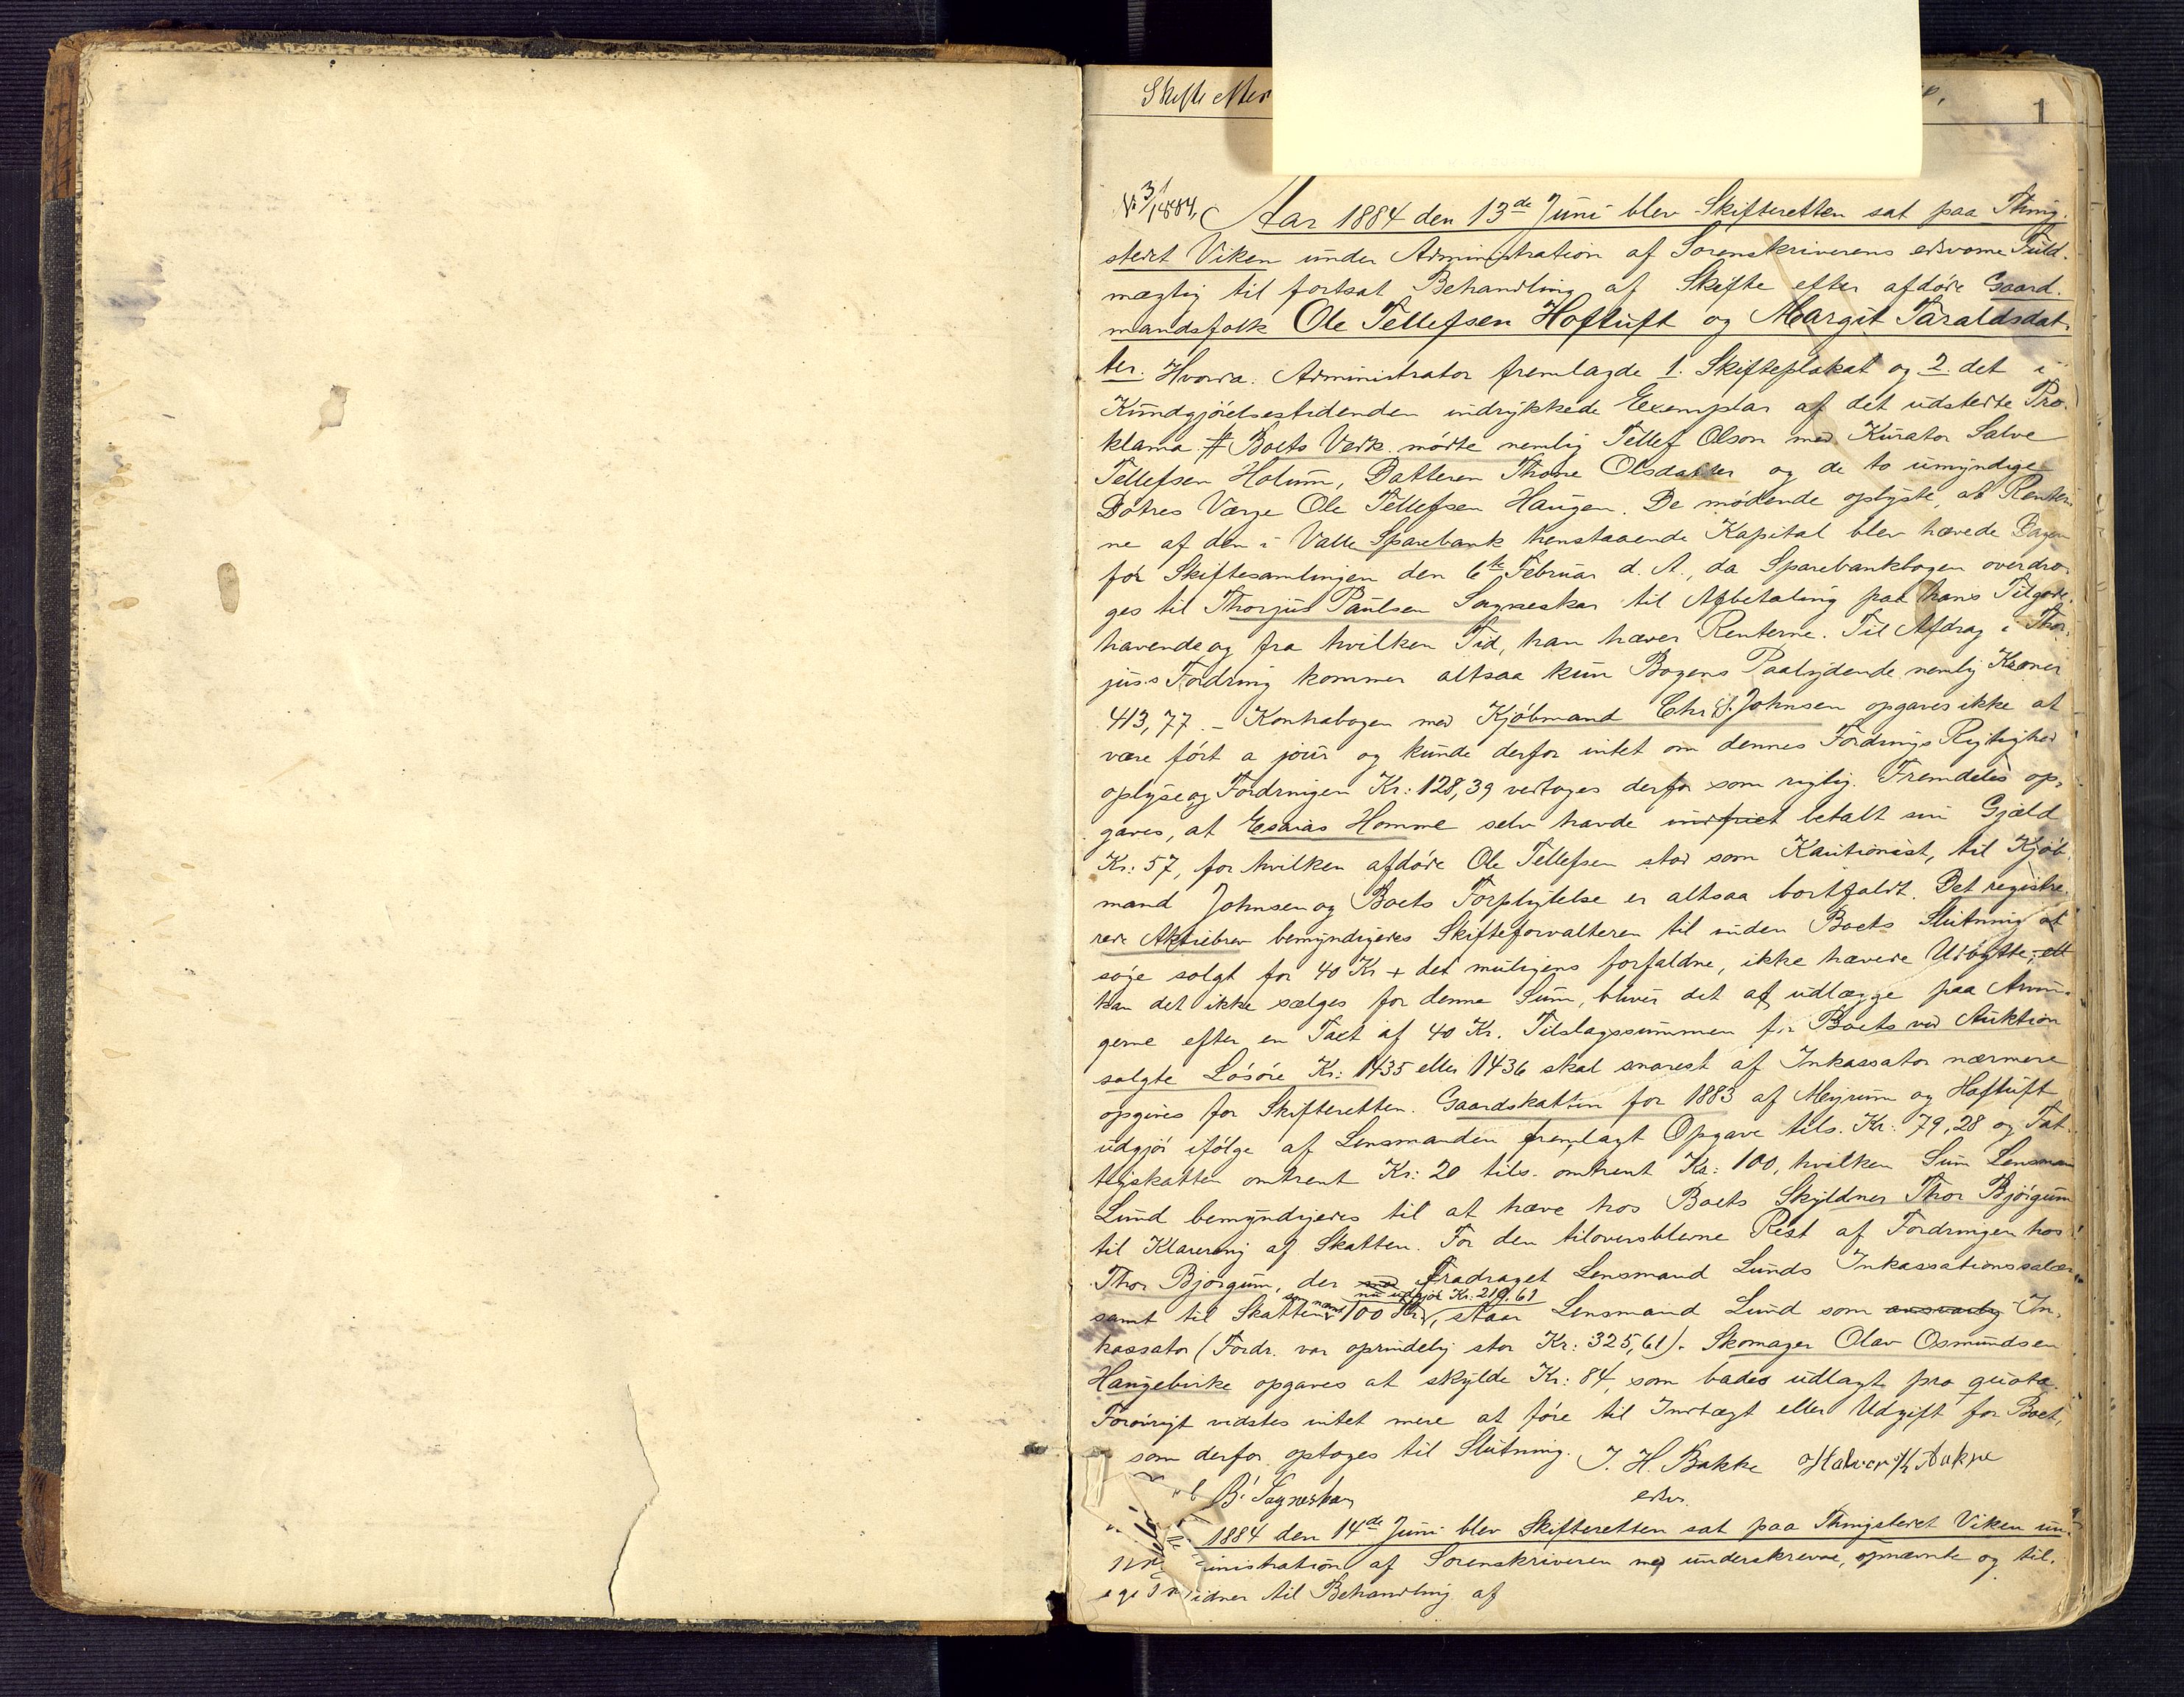 Skifte efter
1
No 3/1884.
Aar 1884 den 13de Juni blev Skifteretten sat paa Thing-
stedet Viken under Administration af Sorenskriverens edsvorne Fuld-
mægtig til fortsat Behandling af Skifte efter afdøde Gaard-
mandsfolk Ole Tellefsen Hoftuft og Margit Taraldsdat-
ter. Hvorda. Administrator fremlagde 1. Skifteplakat og 2. det i
Kundgjørelsestidenden indrykkede Exemplar af det udstedte Pro-
klama # Boets Vedk. mødte nemlig Tellef Olson med Kurator Salve
Tellefsen Holum, Datteren Thone Olsdatter og de to umyndige
Døtres Værge Ole Tellefsen Haugen. De mødende oplyste, at Renter-
ne af den i Valle Sparebank henstaaende Kapital blev hævede Dagen
før Skiftesamlingen den 6te Februar d. A., da Sparebankbogen overdro-
ges til Thorjus Paulsen Sagneskar til Afbetaling paa hans Tilgode-
havende og fra hvilken Tid, han hæver Renterne. Til Afdrag i Thor-
jus's Fordring kommer altsaa kun Bogens Paalydende nemlig Kroner
413,77. - Kontrabogen med Kjøbmand Chr. S. Johnsen opgaves ikke at
være ført a jour og kunde derfor intet om dennes Fordrings Rigtighed
oplyse og Fordringen Kr: 128,39 vedtoges derfor som rigtig. Fremdeles op-
gaves, at Esaias Homme selv havde indfriet betalt sin Gjæld
Kr: 57, for hvilken afdøde Ole Tellefsen stod som Kautionist, til Kjøb-
mand Johnsen og Boets Forpligtelse er altsaa bortfaldt. Det registre-
rede Aktiebrev bemyndigedes Skifteforvalteren til inden Boets Slutning at
søge solgt for 40 Kr + det muligens forfaldne, ikke hævede Udbytte;
kan det ikke sælges for denne Sum, bliver det at udlægge paa Arvin-
gerne efter en Taxt af 40 Kr. Tilslagssummen for Boets ved Auktion
solgte Løsøre Kr: 1435 eller 1436 skal snarest af Inkassator nærmere
opgives for Skifteretten. Gaardskatten for 1883 af Myrum og Hoftuft
udgjør ifølge af Lensmanden fremlagt Opgave tils. Kr: 79,28 og Fat-
tigskatten omtrent Kr: 20 tils. omtrent Kr: 100, hvilken Sum Lensmand
Lund bemyndigedes til at hæve hos Boets Skyldner Thor Bjørgum
til Klarering af Skatten. For den tiloversblevne Rest af Fordringen hos
Thor Bjørgum, der fradraget Lensmand Lunds Inkassationssalær
som nævnt nu udgjør Kr: 219,61
samt til Skatten 100 Kr, staar Lensmand Lund som ansvarlig In-
kassator (Fordr. var oprindelig stor Kr: 325,61). Skomager Olav Osmundsen
Haugebirke opgaves at skylde Kr: 84, som bades udlagt pro quota.
Forøvrigt vidstes intet mere at føre til Indtægt eller Udgift for Boet,
som derfor optoges til Slutning. J. H. Bakke Halvor Bakke
B. Sagneskar edsv.
1884 den 14de Juni blev Skifteretten sat paa Thingstedet Viken un-
inistration af Sorenskriveren med underskrevne, opnævnte og til-
idner til Behandling af